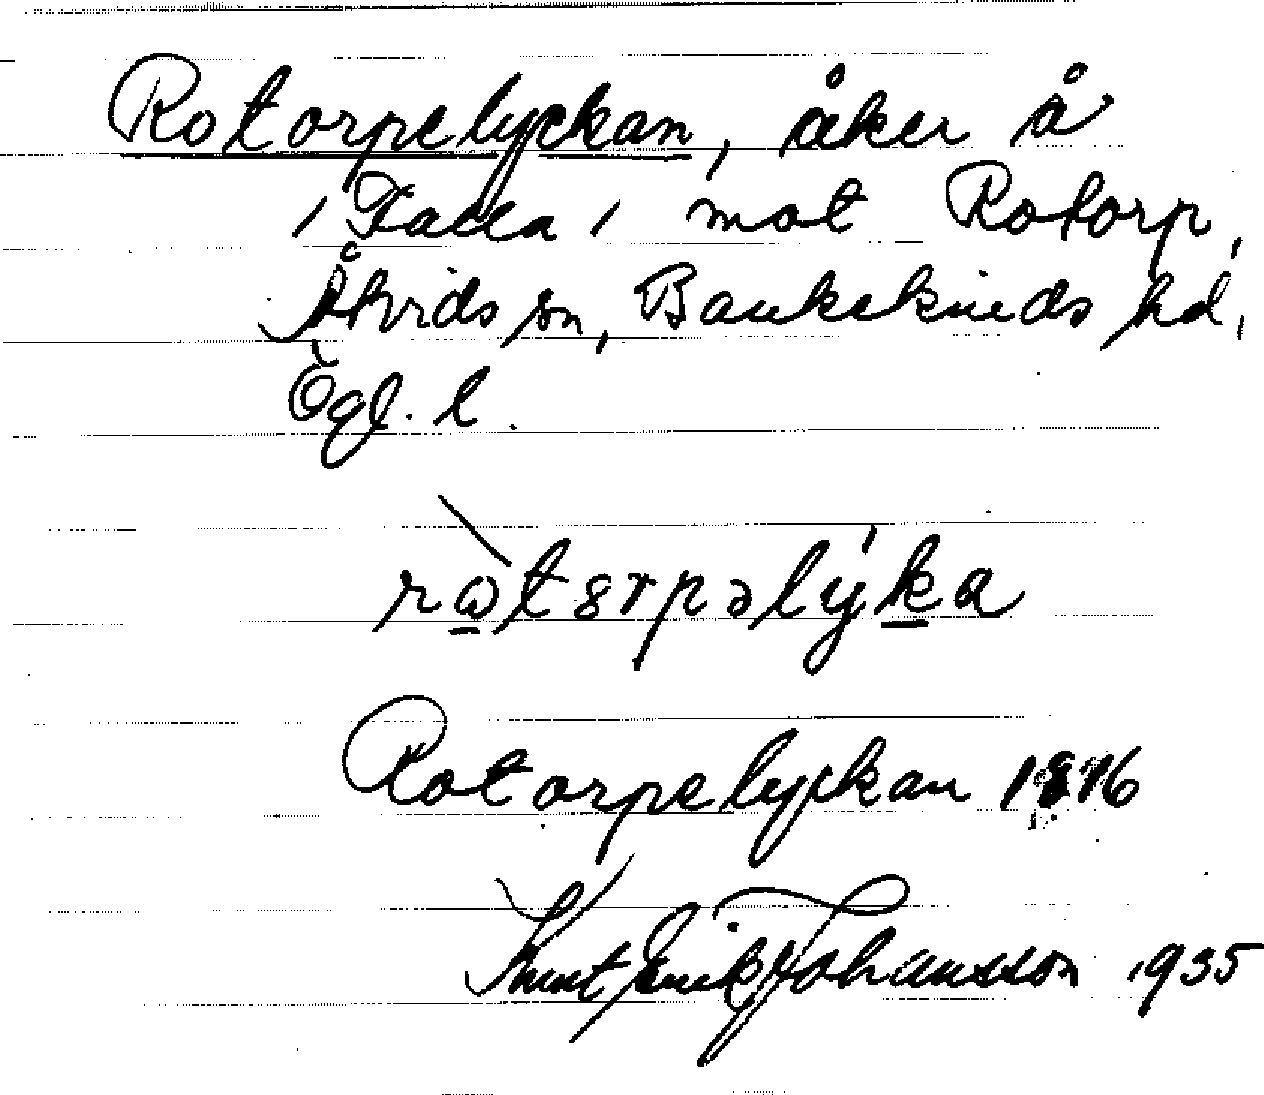 Rotorpelyckan, åker å
/ Falla / mot Rotorp,
Åtvids sn, Bankekinds hd,
Ögl. l.
ròtɜrpəlýka
Rotorpelyckan 1876
Knut Erik Johansson 1935